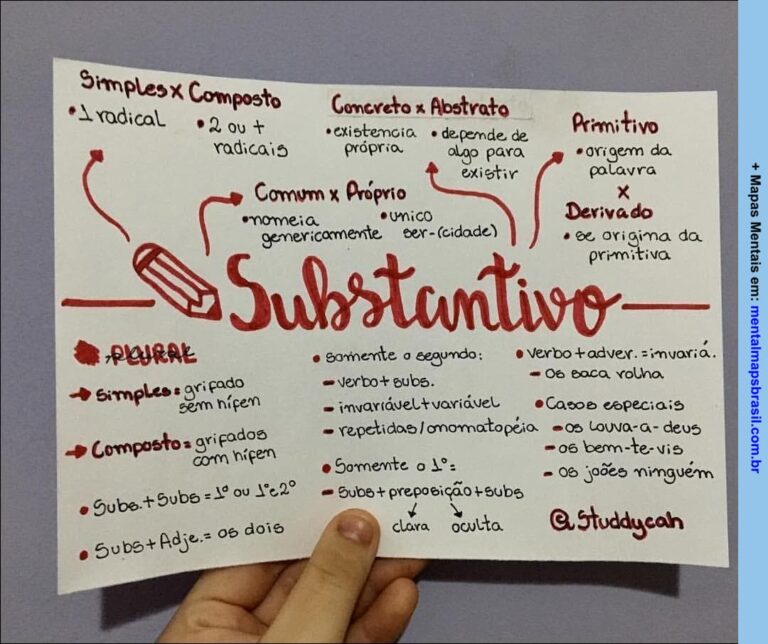 Simples x Composto
• 1 radical
• 2 ou +
radicais
Concreto x Abstrato
• existencia
própria
• depende de
algo para
existir
Primitivo
• origem da
palavra
x
Derivado
• se origina da
primitiva
Comum x Próprio
• nomeia
genericamente
• unico
ser-(cidade)
Substantivo
PLURAL
→ Simples = grifado
sem hífen
→ Composto = grifados
com hífen
• Subs. + Subs = 1º ou 1º e 2º
• Subs + Adje. = os dois
• Somente o segundo:
- verbo + subs.
- invariável + variável
- repetidas/onomatopéia
• Somente o 1º =
- Subs + preposição + subs
clara oculta
• verbo + adver. = invariá.
- os saca rolha
• Casos especiais
- os louva-a-deus
- os bem-te-vis
- os joões ninguém
@Studdycah
+ Mapas Mentais em: mentalmapsbrasil.com.br